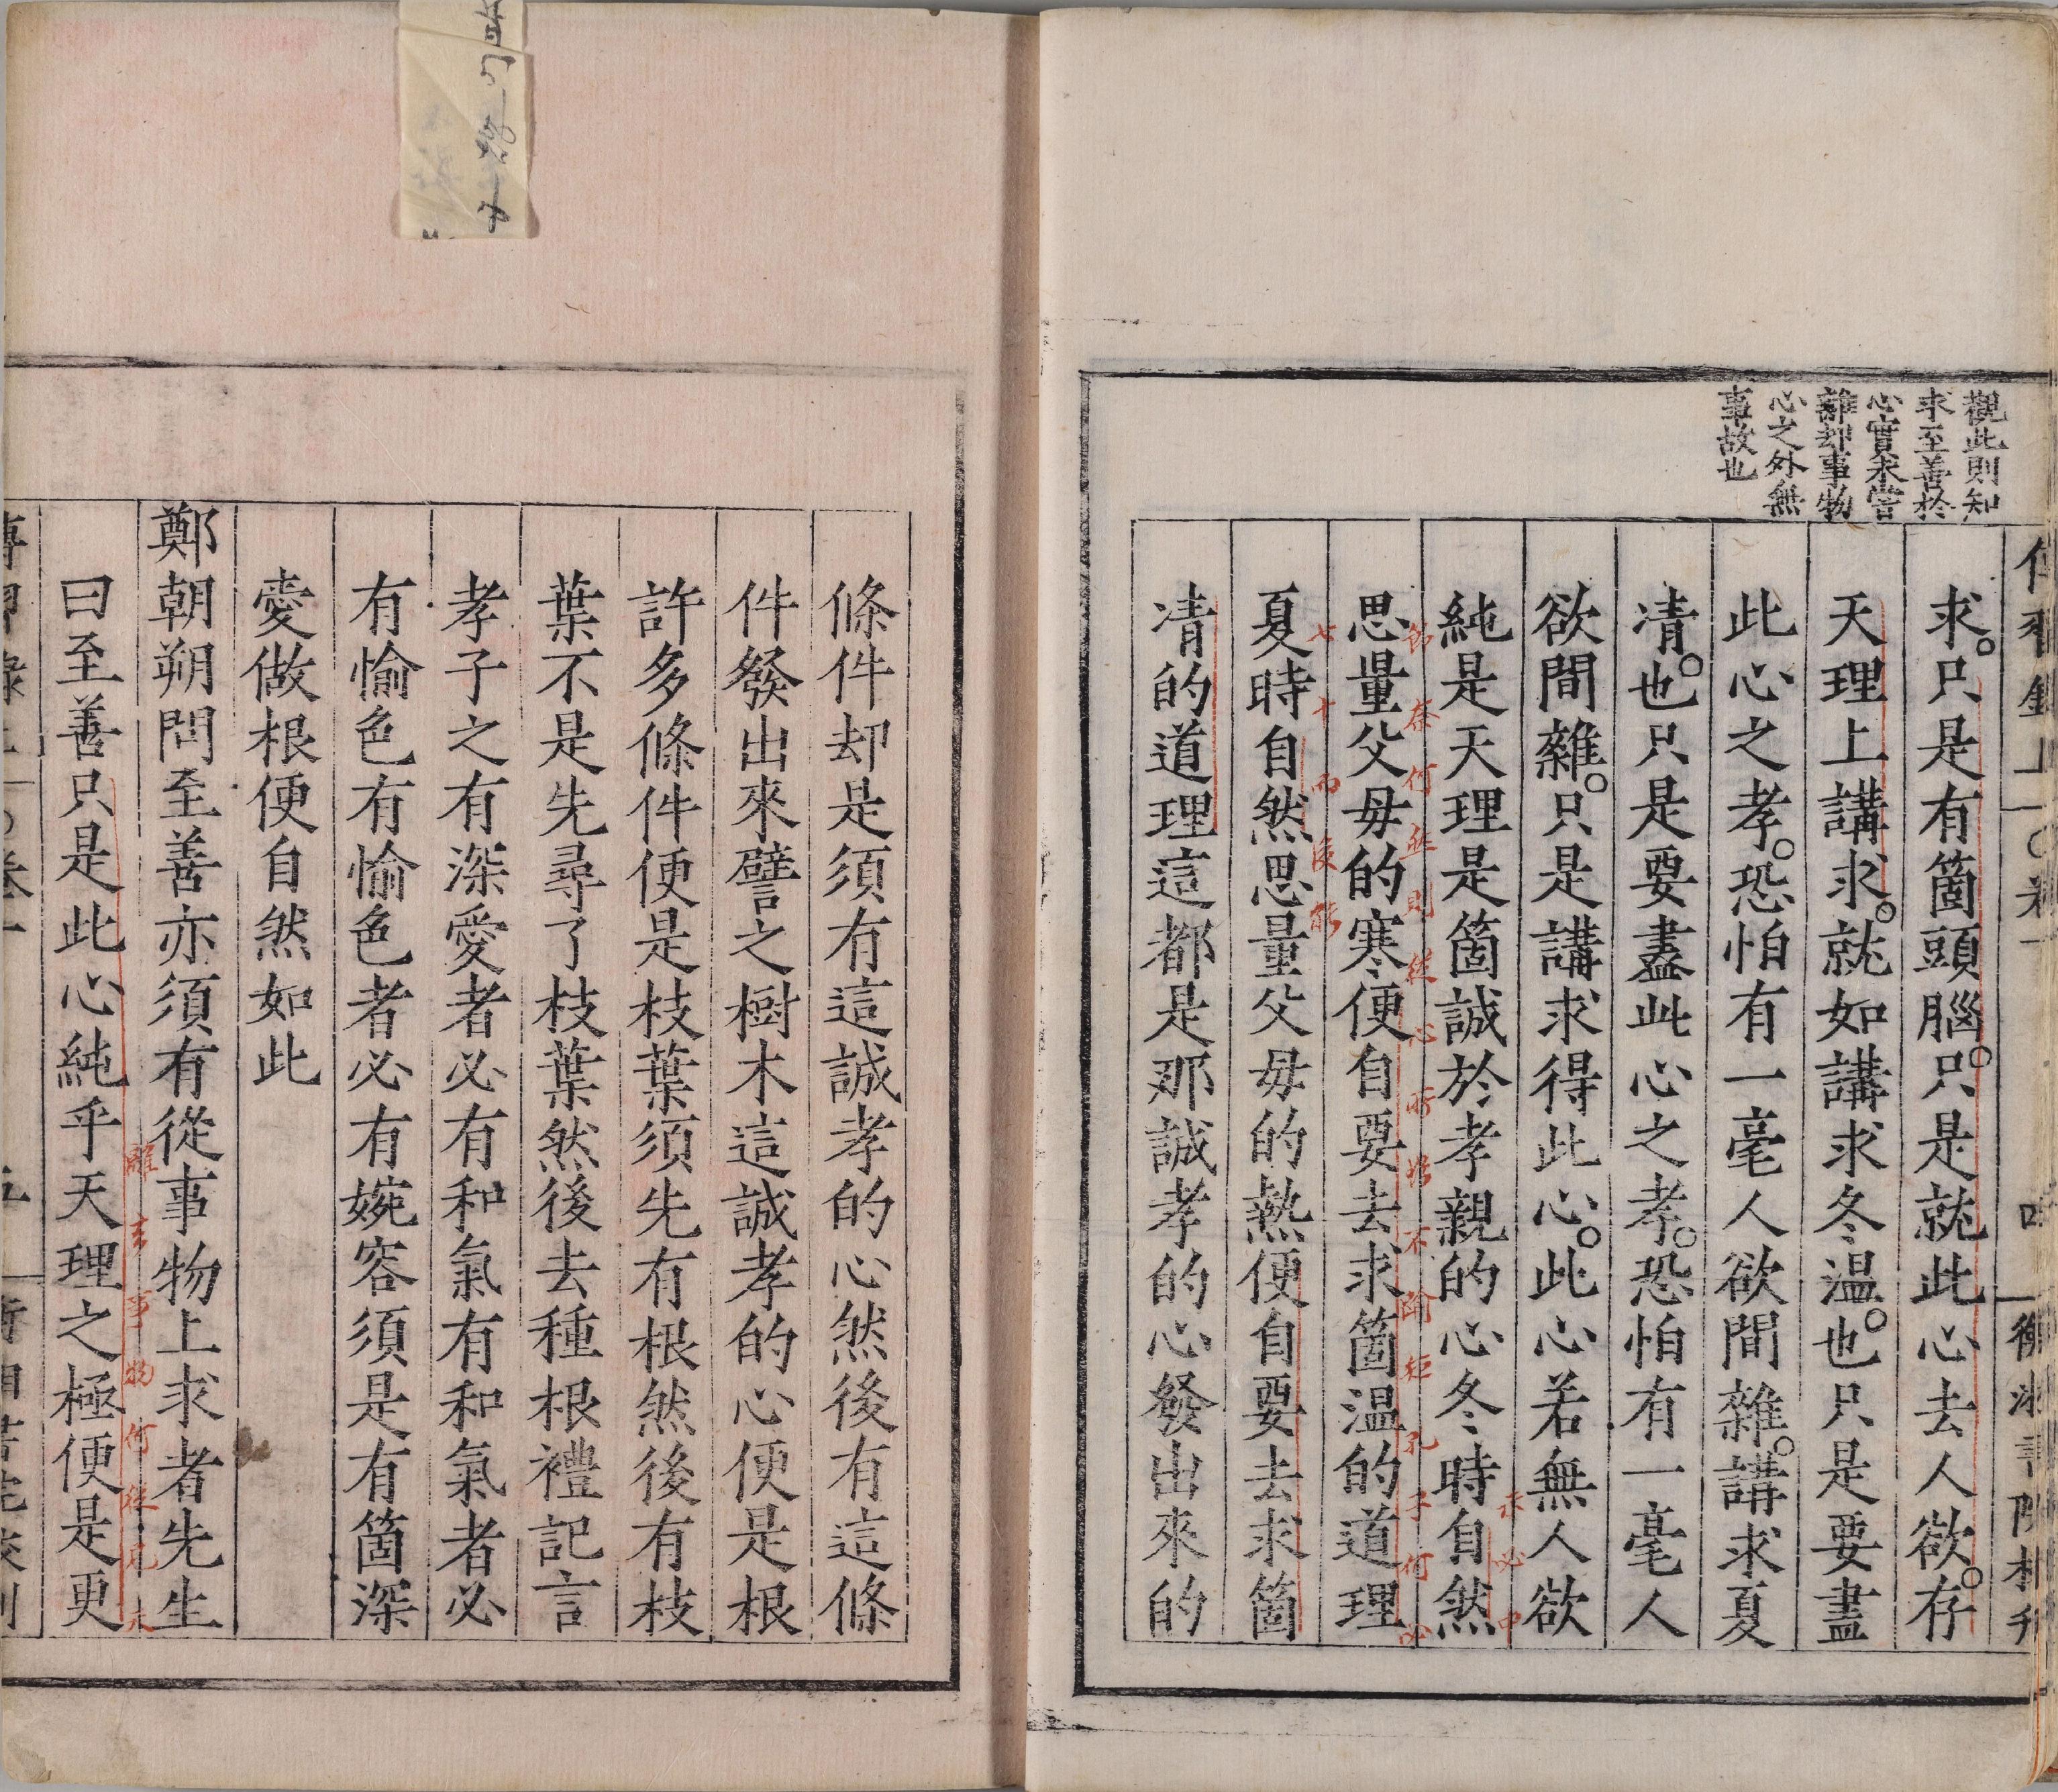 觀此則知
求至善於
心實未嘗
離却事物
心之外無
事故也
求只是有箇頭腦只是就此心去人欲存
天理上講求就如講求冬温也只是要盡
此心之孝恐怕有一毫人欲間雜講求夏
凊也只是要盡此心之孝恐怕有一毫人
欲間雜只是講求得此心此心若無人欲
純是天理是箇誠於孝親的心冬時自然
思量父母的寒便自要去求箇温的道理
夏時自然思量父母的熱便自要去求箇
凊的道理這都是那誠孝的心發出來的
未必中
節蔡何 則從心所 不踰矩孔子何必
七十而後能
條件却是須有這誠孝的心然後有這條
件發出來譬之樹木這誠孝的心便是根
許多條件便是枝葉須先有根然後有枝
葉不是先尋了枝葉然後去種根禮記言
孝子之有深愛者必有和氣有和氣者必
有愉色有愉色者必有婉容須是有箇深
愛做根便自然如此
鄭朝朔問至善亦須有從事物上求者先生
曰至善只是此心純乎天理之極便是更
離 事物何從